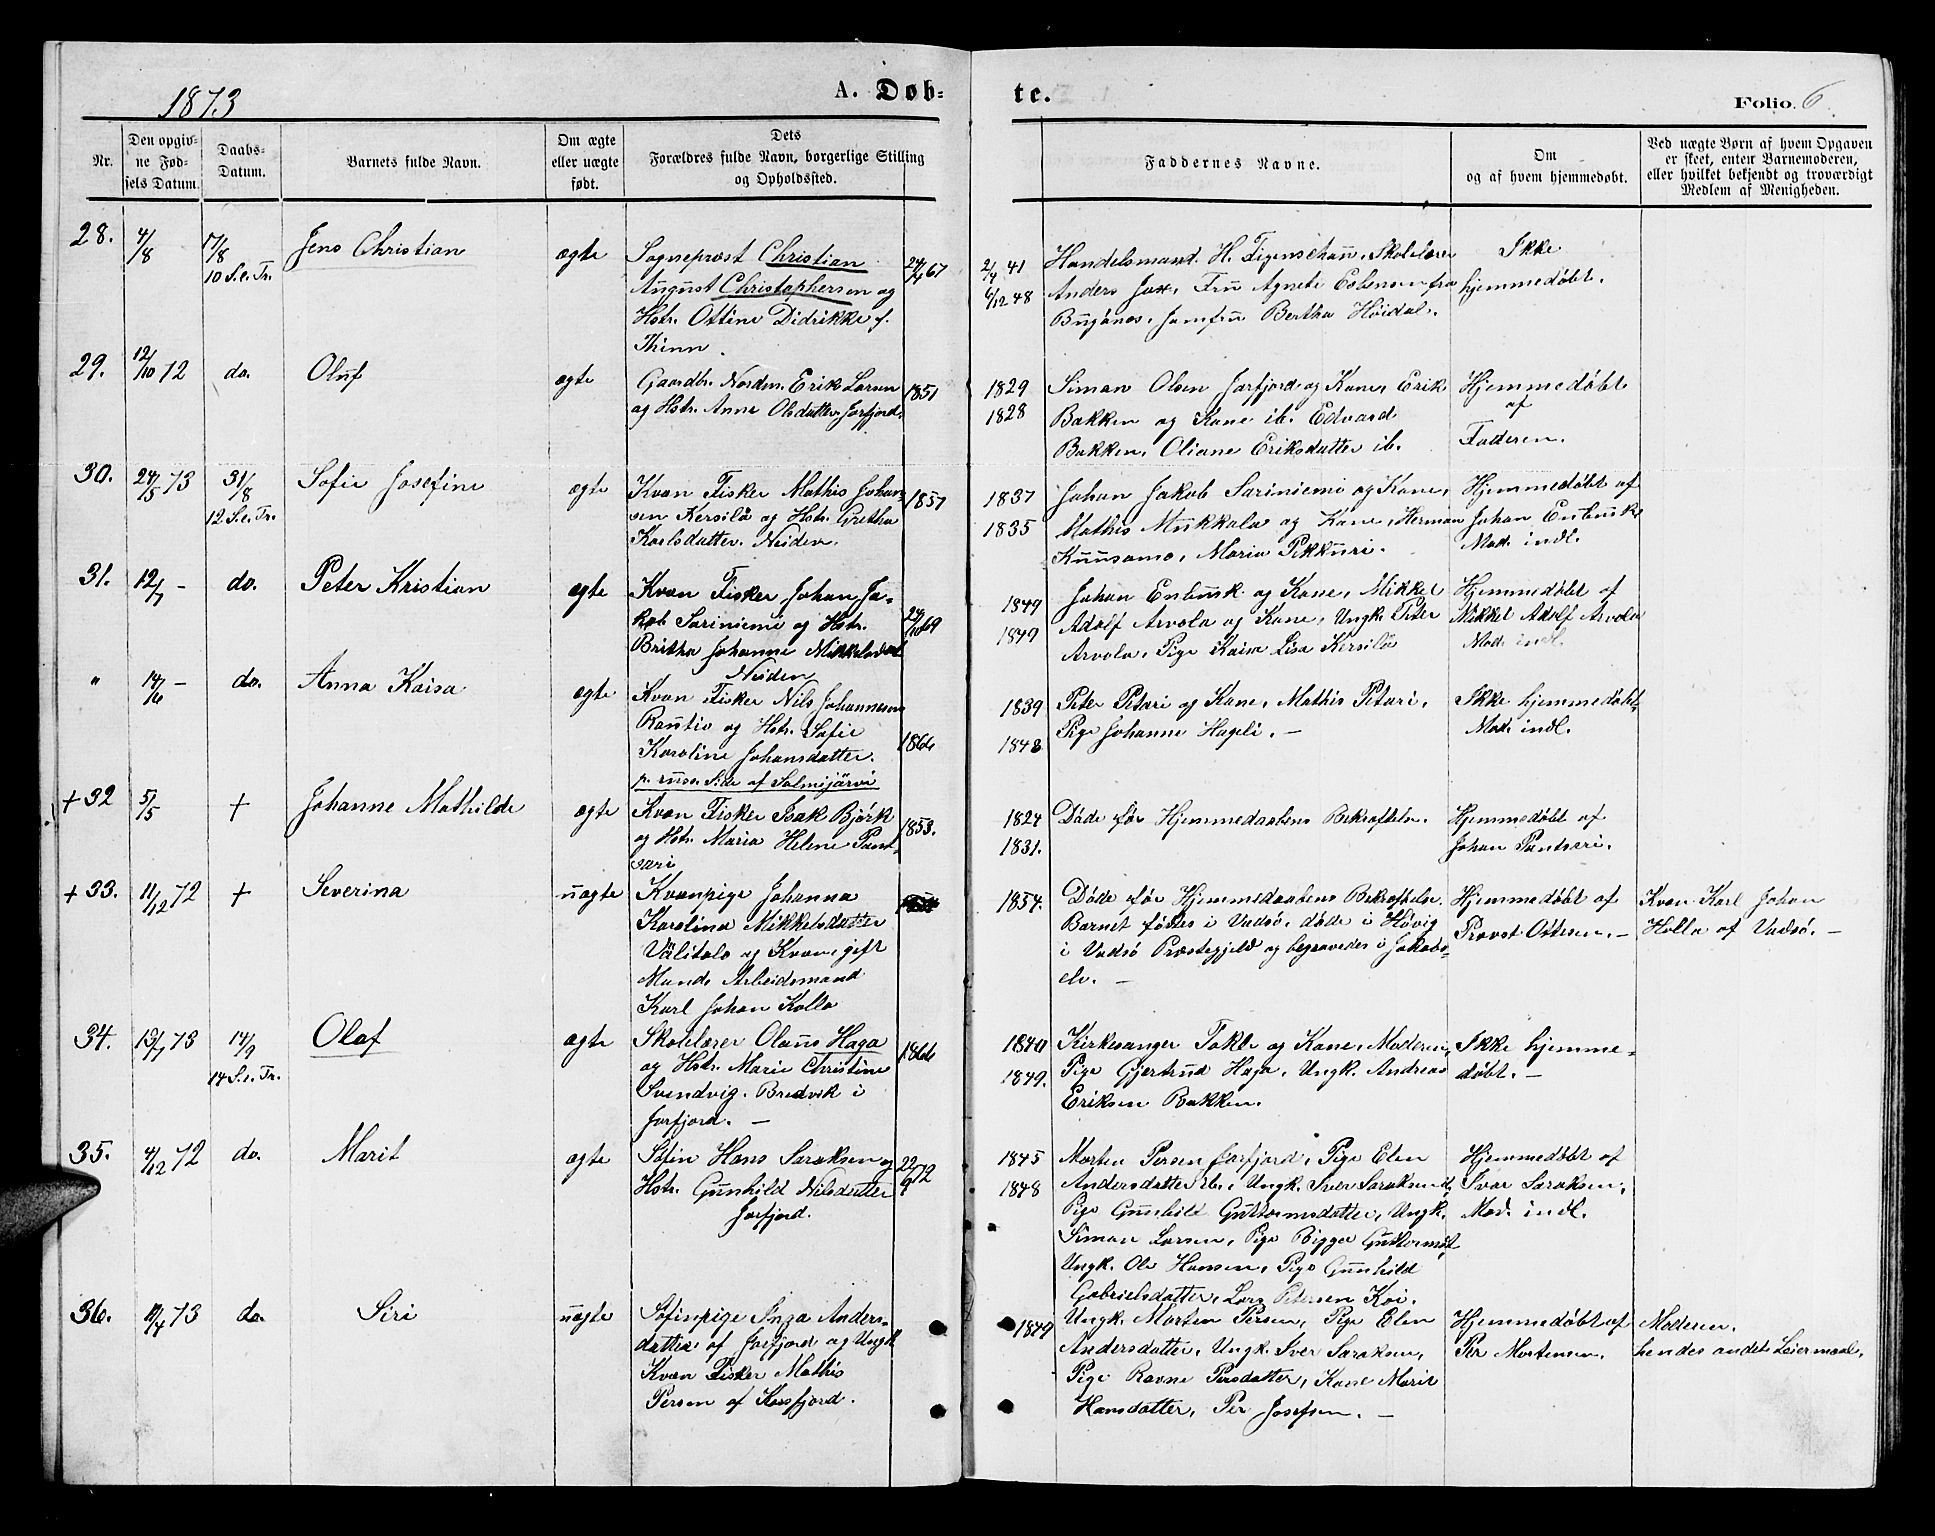 1873
A. Døb-
te.
Folio. 6
Nr.
Den opgiv-
ne Fød-
sels Datum.
Daabs-
Datum.
Barnets fulde Navn.
Om ægte
eller uægte
født.
Dets
Forældres fulde Navn, borgerlige Stilling
og Opholdssted.
Faddernes Navne.
Om
og af hvem hjemmedøbt.
Ved uægte Børn af hvem Opgaven
er skeet, enten Barnemoderen,
eller hvilket bekjendt og troværdigt
Medlem af Menigheden.
28.
4/8
17/8
10 S. e. Tr.
Jens Christian
ægte
Sogneprest Christian
August Christophersen og
Hstr. Ottine Didrikke f.
Thinn.
24/4 67
2/4 41
6/12 48
Handelsmand H. Figenschau, Skolelærer
Anders Jax, Fru Agnete Esbensen fra
Bugønes, Jomfru Bertha Høidal.
Ikke
hjemmedøbt.
29.
12/10 72
do.
Oluf
ægte
Gaardbr. Nordm. Erik Larsen
og Hstr. Anne Olsdatter Jarfjord.
1851
1829
1828
Simon Olsen Jarfjord og Kone, Erik
Bakken og Kone ib. Edvard
Bakken, Oliane Eriksdatter ib.
Hjemmedøbt
af
Faderen.
30.
24/5 73
31/8
12 S. e. Tr.
Sofie Josefine
ægte
Kvæn Fisker Mathis Johan-
sen Kersilä og Hstr. Gretha
Karlsdatter. Neiden.
1857
1837
1835
Johan Jakob Sariniemi og Kone,
Mathis Mukkala og Kone, Herman
Kuusamo, Maria Pikkuri.
Hjemmedøbt af
Johan Enbusk
Mod. indl.
31.
12/7 -
do.
Peter Kristian
ægte
Kvæn Fisker Johan Ja-
kob Sariniemi og Hstr.
Britha Johanne Mikkelsdat
Neiden
24/10 69
1849
1849
Johan Enbusk og Kone, Mikkel
Adolf Arvola og Kone, Ungk. Peter
Arvola, Pige Kaisa Lisa Kersilä
Hjemmedøbt af
Mikkel Adolf Arvola
Mod. indl.
"
14/6 -
do.
Anna Kaisa
ægte
Kvæn Fisker Nils Johannesen
Rautio og Hstr. Sofie
Karoline Johansdatter.
p. russ. Side af Salmijärvi
1866
1839
1848
Peter Petari og Kone, Mathis Petari,
Pige Johanne Hageli. —
Ikke hjemmedøbt
Mod. indl.
+ 32
5/5
+
Johanne Mathilde
ægte
Kvæn Fisker Isak Björk
og Hstr. Maria Helene Pant-
sari
1853.
1824
1831.
Døde før Hjemmedaabens Bekræftelse.
Hjemmedøbt af
Johan Pantseri.
+ 33.
11/12 72
+
Severina
uægte
Kvænpige Johanna
Karolina Mikkelsdatter
Välitalo og Kvæn, gift
Mand, Arbeidsmand
Karl Johan Kolla
1854.
Døde før Hjemmedaabens Bekræftelse.
Barnet fødtes i Vadsø, døde i Høvig
i Vadsø Præstegjeld og begravedes i Jakobs-
elv. —
Hjemmedøbt af
Provst Ottesen. —
Kvæn Karl Johan
Holla af Vadsø. —
34.
13/7 73
14/9
14 S. e. Tr.
Olaf
ægte
Skolelærer Olaus Haga
og Hstr. Marie Christine
Svendvig. Bredvik i
Jarfjord. —
1866
1840
1849.
Kirkesanger Takle og Kone, Moderen,
Pige Gjertrud Haga, Ungk. Andreas
Eriksen Bakken.
Ikke hjemme-
døbt. —
35.
4/12 72
do.
Marit
ægte
Søfin Hans Saraksen og
Hstr. Gunhild Nilsdatter
Jarfjord.
22/9 72
1845
1848
Morten Persen Jarfjord, Pige Elen
Andersdatter ib., Ungk. Iver Saraksen,
Pige Gunhild Guttormsdatter, Ungk.
Simon Larsen, Pige Bigger Guttormsdt,
Ungk. Ole Hansen, Pige Gunhild
Gabrielsdatter, Lars Petersen Koi.
Hjemmedøbt af
Ivar Saraksen,
Mod. indl.
36.
11/4 73
do.
Siri
uægte
Søfinpige Inga Anders-
datter af Jarfjord og Ungk
Kvæn Fisker Mathis
Persen af Korsfjord.
1849
Ungk. Morten Persen, Pige Elen
Andersdatter, Ungk. Iver Saraksen,
Pige Ravne Persdatter, Kone Marit
Hansdatter, Per Josefsen. —
Hjemmedøbt af
Per Mortensen.
Moderen.
hendes andet Leiermaal.